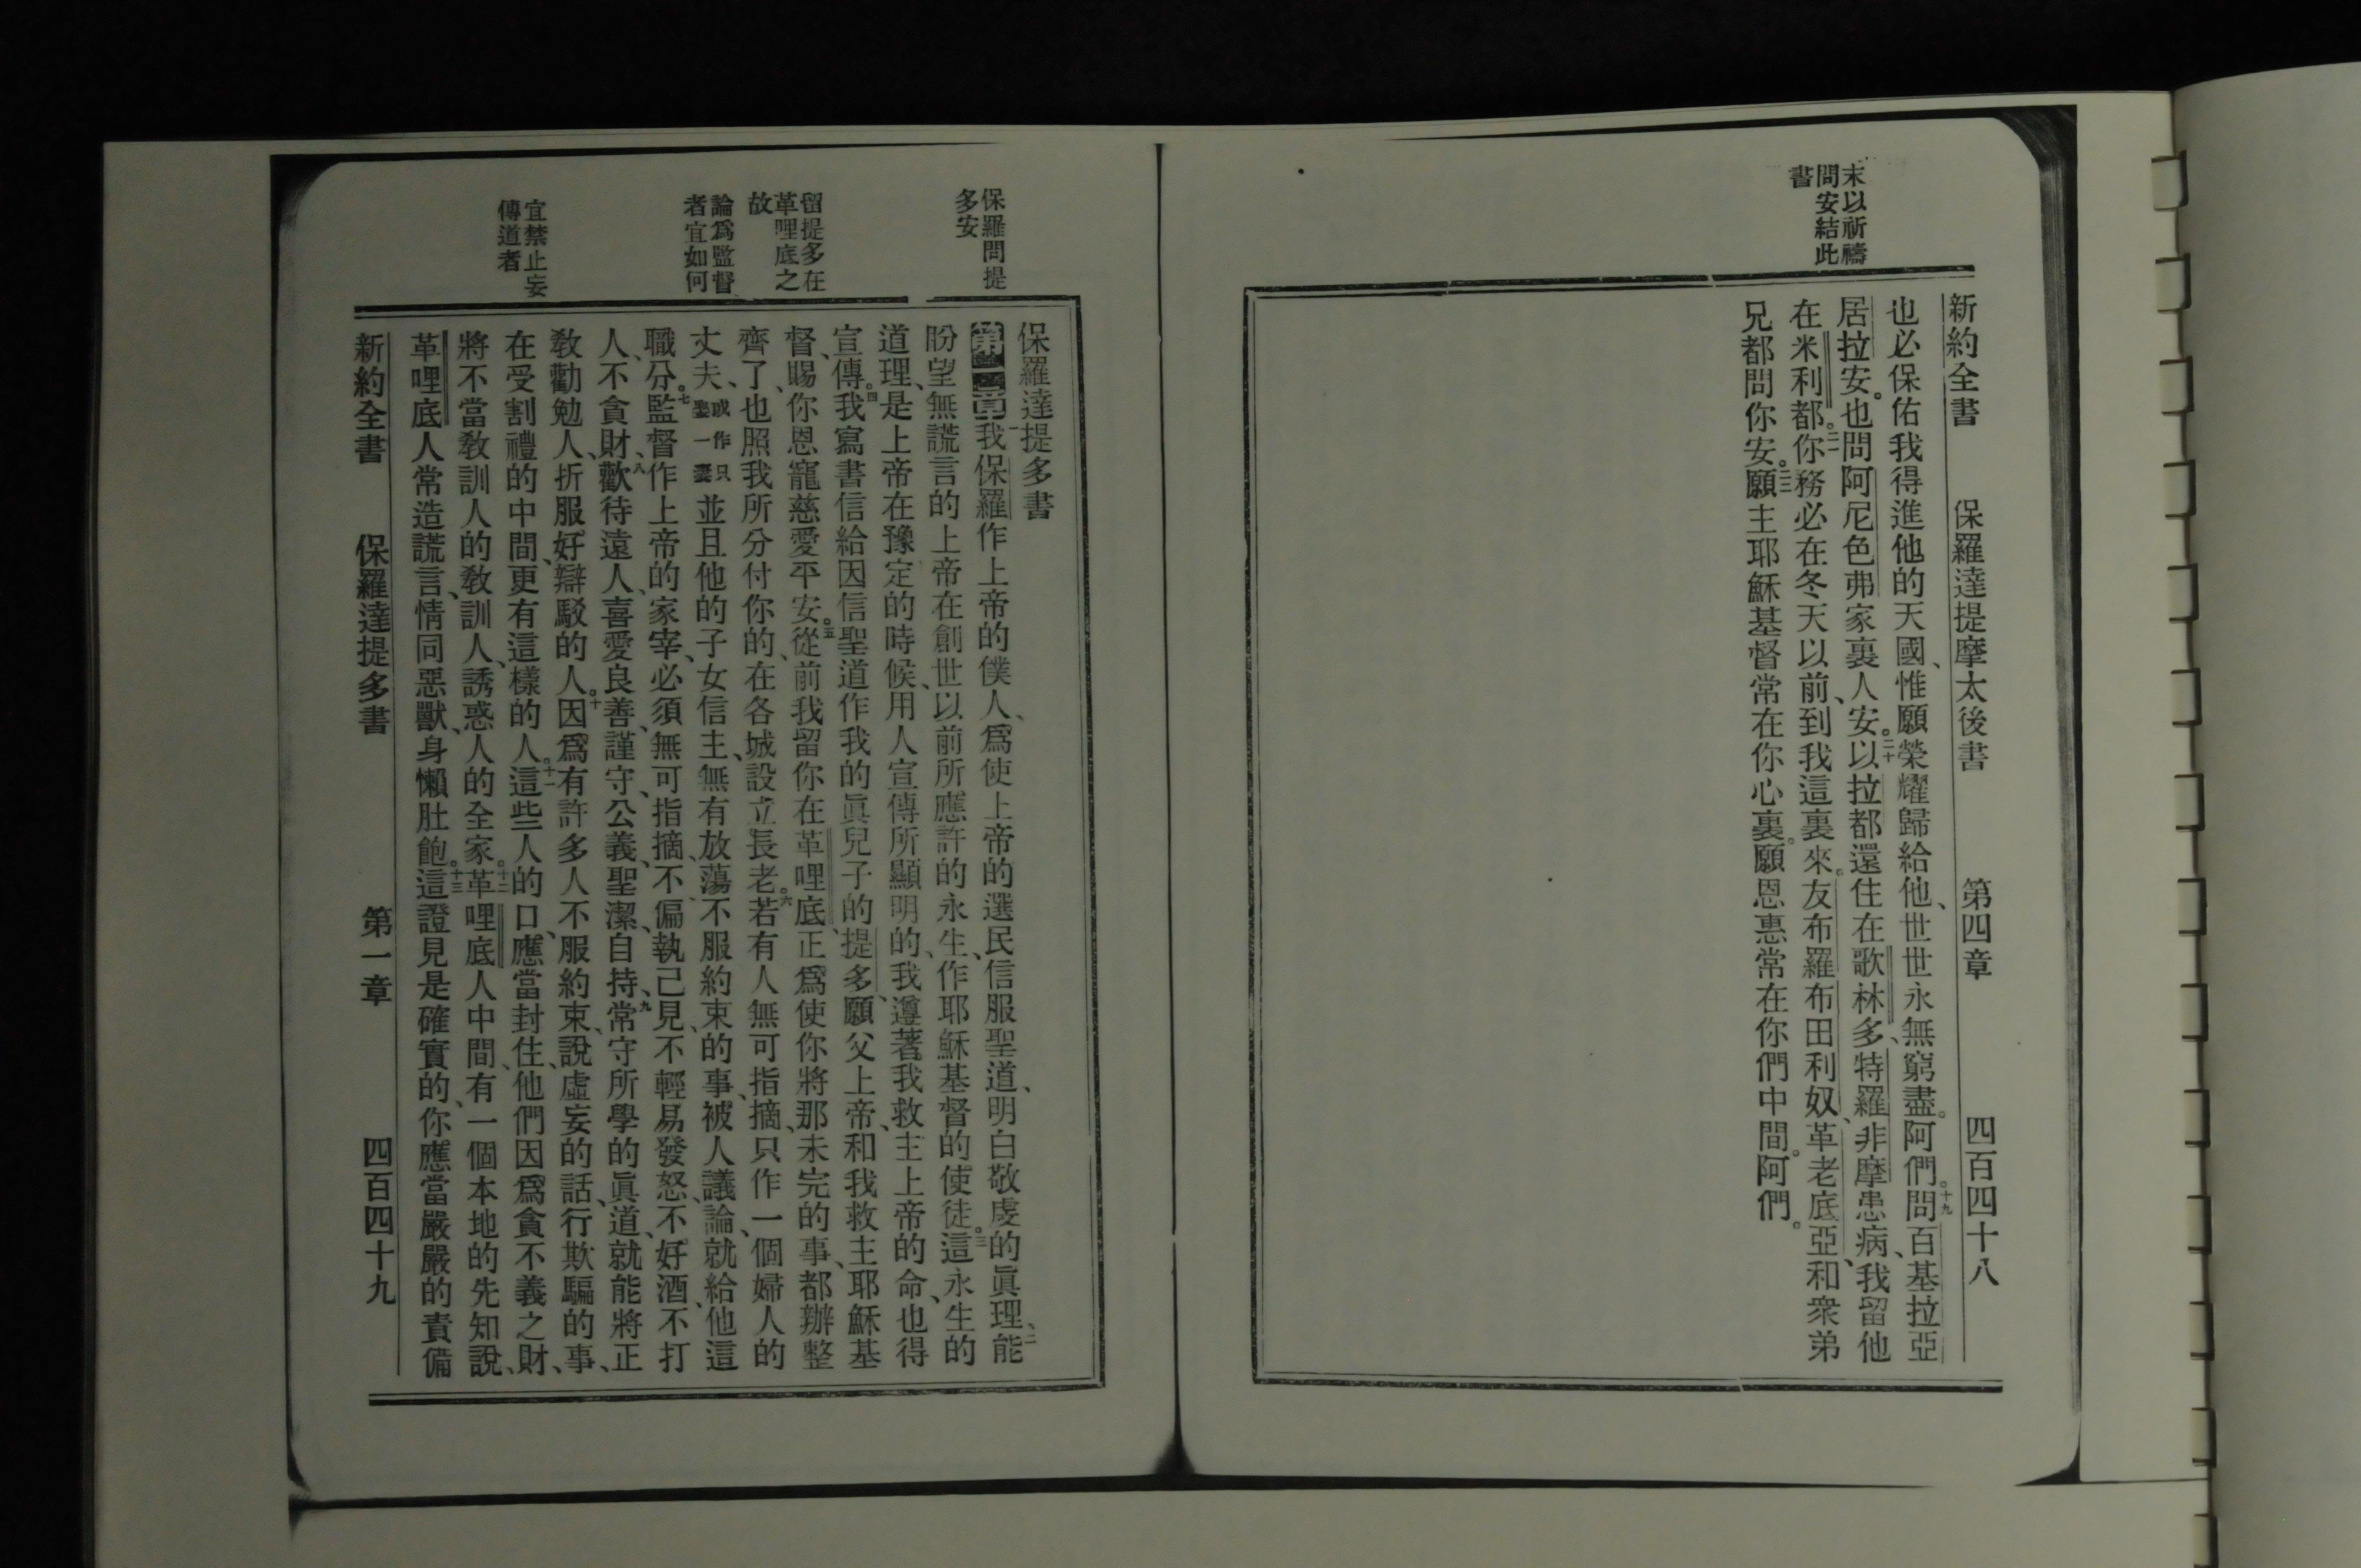 末以祈禱
問安結此
書
新約全書 保羅達提摩太後書 第四章 四百四十八
也必保佑我得進他的天國、惟願榮耀歸給他、世世永無窮盡。阿們。十九問百基拉亞
居拉安。也問阿尼色弗家裏人安。二十以拉都還住在歌林多、特羅非摩患病、我留他
在米利都。二一你務必在冬天以前、到我這裏來。友布羅布田利奴、革老底亞、和衆弟
兄都問你安。二二願主耶穌基督常在你心裏。願恩惠常在你們中間。阿們。
保羅問提
多安
留提多在
革哩底之
故
論爲監督
者宜如何
宜禁止妄
傳道者
保羅達提多書
第一章一我保羅作上帝的僕人、爲使上帝的選民信服聖道、明白敬虔的眞理、二能
盼望無謊言的上帝在創世以前所應許的永生、作耶穌基督的使徒。三這永生的
道理、是上帝在豫定的時候、用人宣傳所顯明的、我遵著我救主上帝的命、也得
宣傳。四我寫書信給因信聖道作我的眞兒子的提多、願父上帝、和我救主耶穌基
督、賜你恩寵慈愛平安。五從前我留你在革哩底、正爲使你將那未完的事、都辦整
齊了、也照我所分付你的、在各城設立長老。六若有人無可指摘、只作一個婦人的
丈夫、或作只娶一妻並且他的子女信主、無有放蕩不服約束的事、被人議論、就給他這
職分。七監督作上帝的家宰、必須無可指摘、不偏執己見、不輕易發怒、不好酒、不打
人、不貪財、八歡待遠人、喜愛良善、謹守、公義、聖潔、自持、九常守所學的眞道、就能將正
敎勸勉人、折服好辯駁的人。十因爲有許多人不服約束、說虛妄的話、行欺騙的事、
在受割禮的中間、更有這樣的人。十一這些人的口、應當封住、他們因爲貪不義之財、
將不當敎訓人的敎訓人、誘惑人的全家。十二革哩底人中間、有一個本地的先知說、
革哩底人常造謊言、情同惡獸、身懶肚飽。十三這證見是確實的、你應當嚴嚴的責備
新約全書 保羅達提多書 第一章 四百四十九